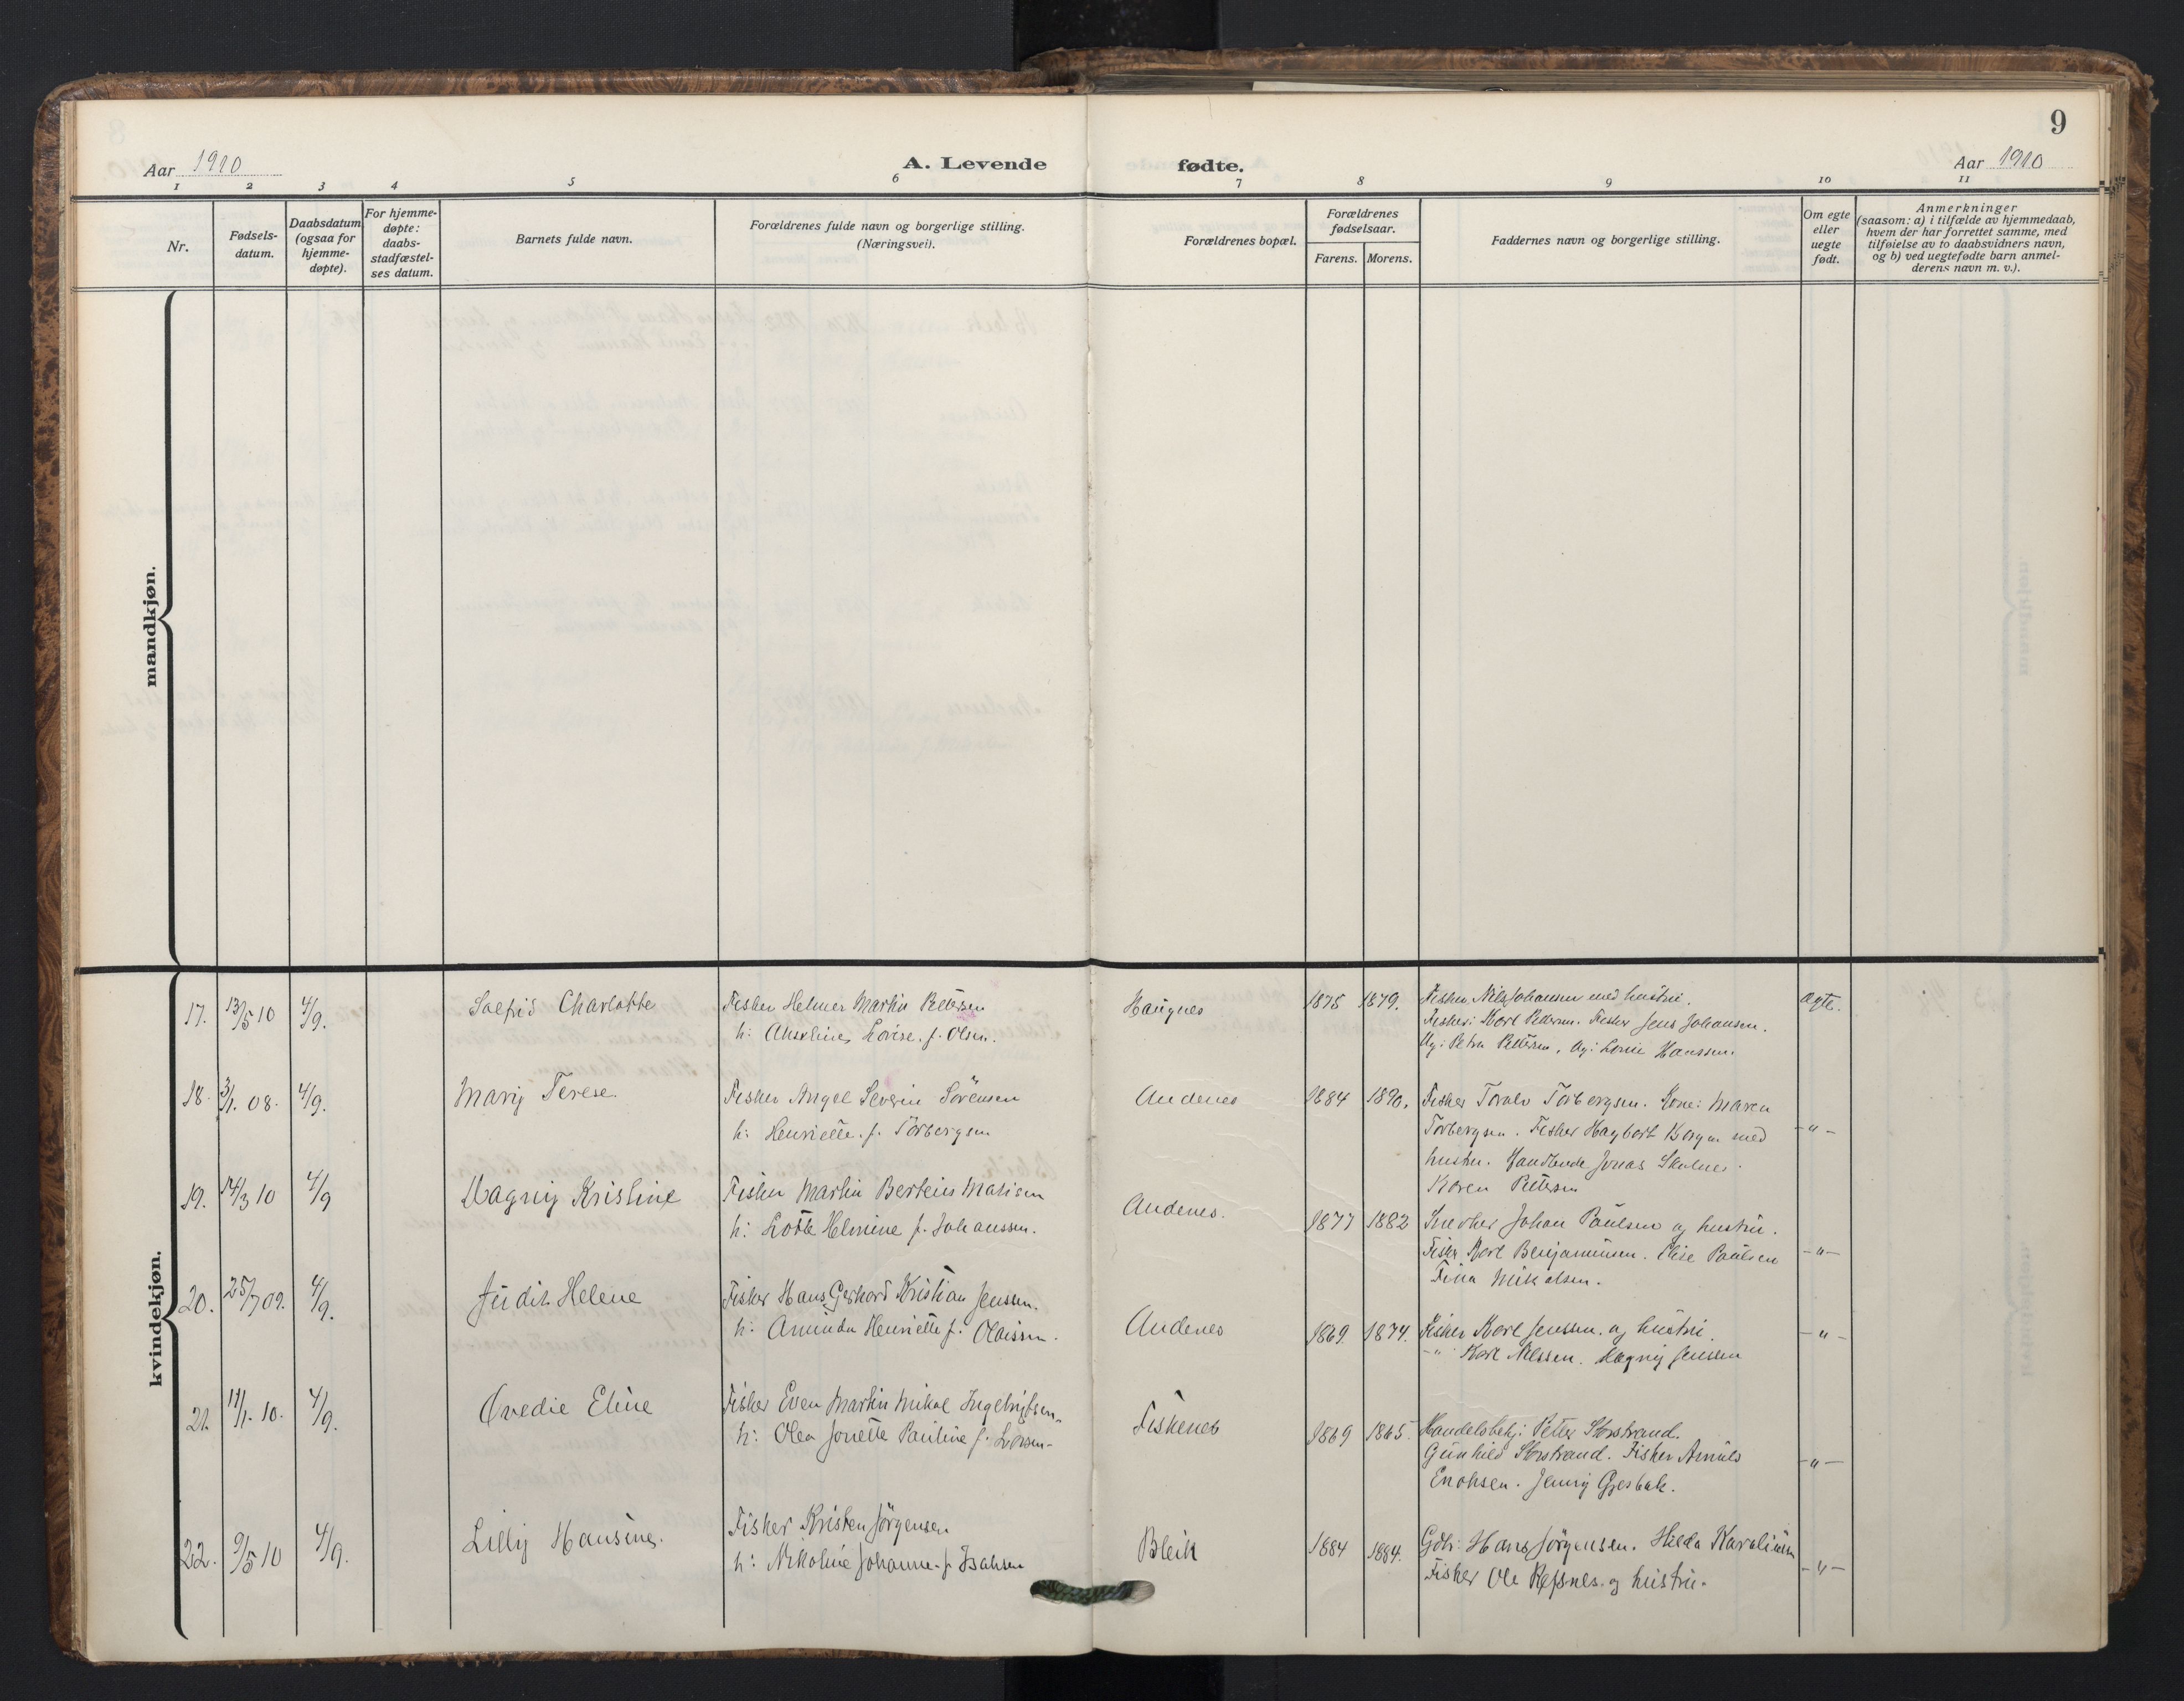 9
Aar 1910
A. Levende
fødte.
Aar 1910
1 2 3 4 5 6 7 8 9 10 11
Nr.
Fødsels-
datum.
Daabsdatum
(ogsaa for
hjemme-
døpte).
For hjemme-
døpte:
daabs-
stadfæstel-
ses datum.
Barnets fulde navn.
Forældrenes fulde navn og borgerlige stilling.
(Næringsvei).
Forældrenes bopæl.
Forældrenes
fødselsaar.
Farens. Morens.
Faddernes navn og borgerlige stilling.
Om egte
eller
uegte
født.
Anmerkninger
(saasom: a) i tilfælde av hjemmedaab,
hvem der har forrettet samme, med
tilføielse av to daabsvidners navn,
og b) ved uegtefødte barn anmel-
derens navn m. v.).
mandkjøn.
kvindekjøn.
17. 13/5 10 4/9. Solfrid Charlotte
Fisker Helmer Martin Pettersen
h: Anseline Lovise f. Olsen.
Haugnes 1875 1879.
Fisker Nils Johansen med hustru.
Fisker: Karl Pettersen. Fisker Jens Johansen.
Ug: Petra Pettersen, Ug: Lovise Hanssen.
Ægte.
18. 3/1. 08. 4/9. Marij Terese
Fisker Angel Severin Sörensen
h: Henriette f. Torbergsen
Andenes 1884 1890.
Fisker Toralv Torbergsen. Kone: Maren
Torbergsen. Fisker Hagbart Borgen med
hustru. Handlende Jonas Skulnes.
Karen Pettersen
-"-
19. 14/3 10 4/9 Magnij Kristine
Fisker Martin Berteus Matisen
h: Lotte Helmine f. Johanssen.
Andenes. 1877 1882
Snedker Johan Paulsen og hustru.
Fisker Karl Benjaminsen. Elise Paulsen
Fina Mikalsen.
-"-
20. 25/7 09. 4/9. Judit Helene
Fisker Hans Gerhard Kristian Jenssen.
h: Aminda Henriette f. Olaissen.
Andenes 1869 1874.
Fisker Karl Jenssen. og hustru.
-"- Karl Nilssen. Magnij Jenssen
-"-
21. 11/1. 10. 4/9. Ovedie Eline
Fisker Even Martin Mikal Ingebrigtsen
h: Olea Jonette Pauline f. Larsen
Fiskenes 1869 1865
Handelsbetj: Petter Storstrand.
Gunhild Storstrand. Fisker Arnuld
Enoksen. Jennij Gjesbak.
-"-
22. 9/5 10 4/9. Lillij Hansine
Fisker Kristen Jörgensen
h: Nikoline Johanne f. Isaksen
Bleik 1884 1884.
Gdbr: Hans Jörgensen. Hilda Karoliusen
Fisker Ole Refsnes og hustru.
-"-